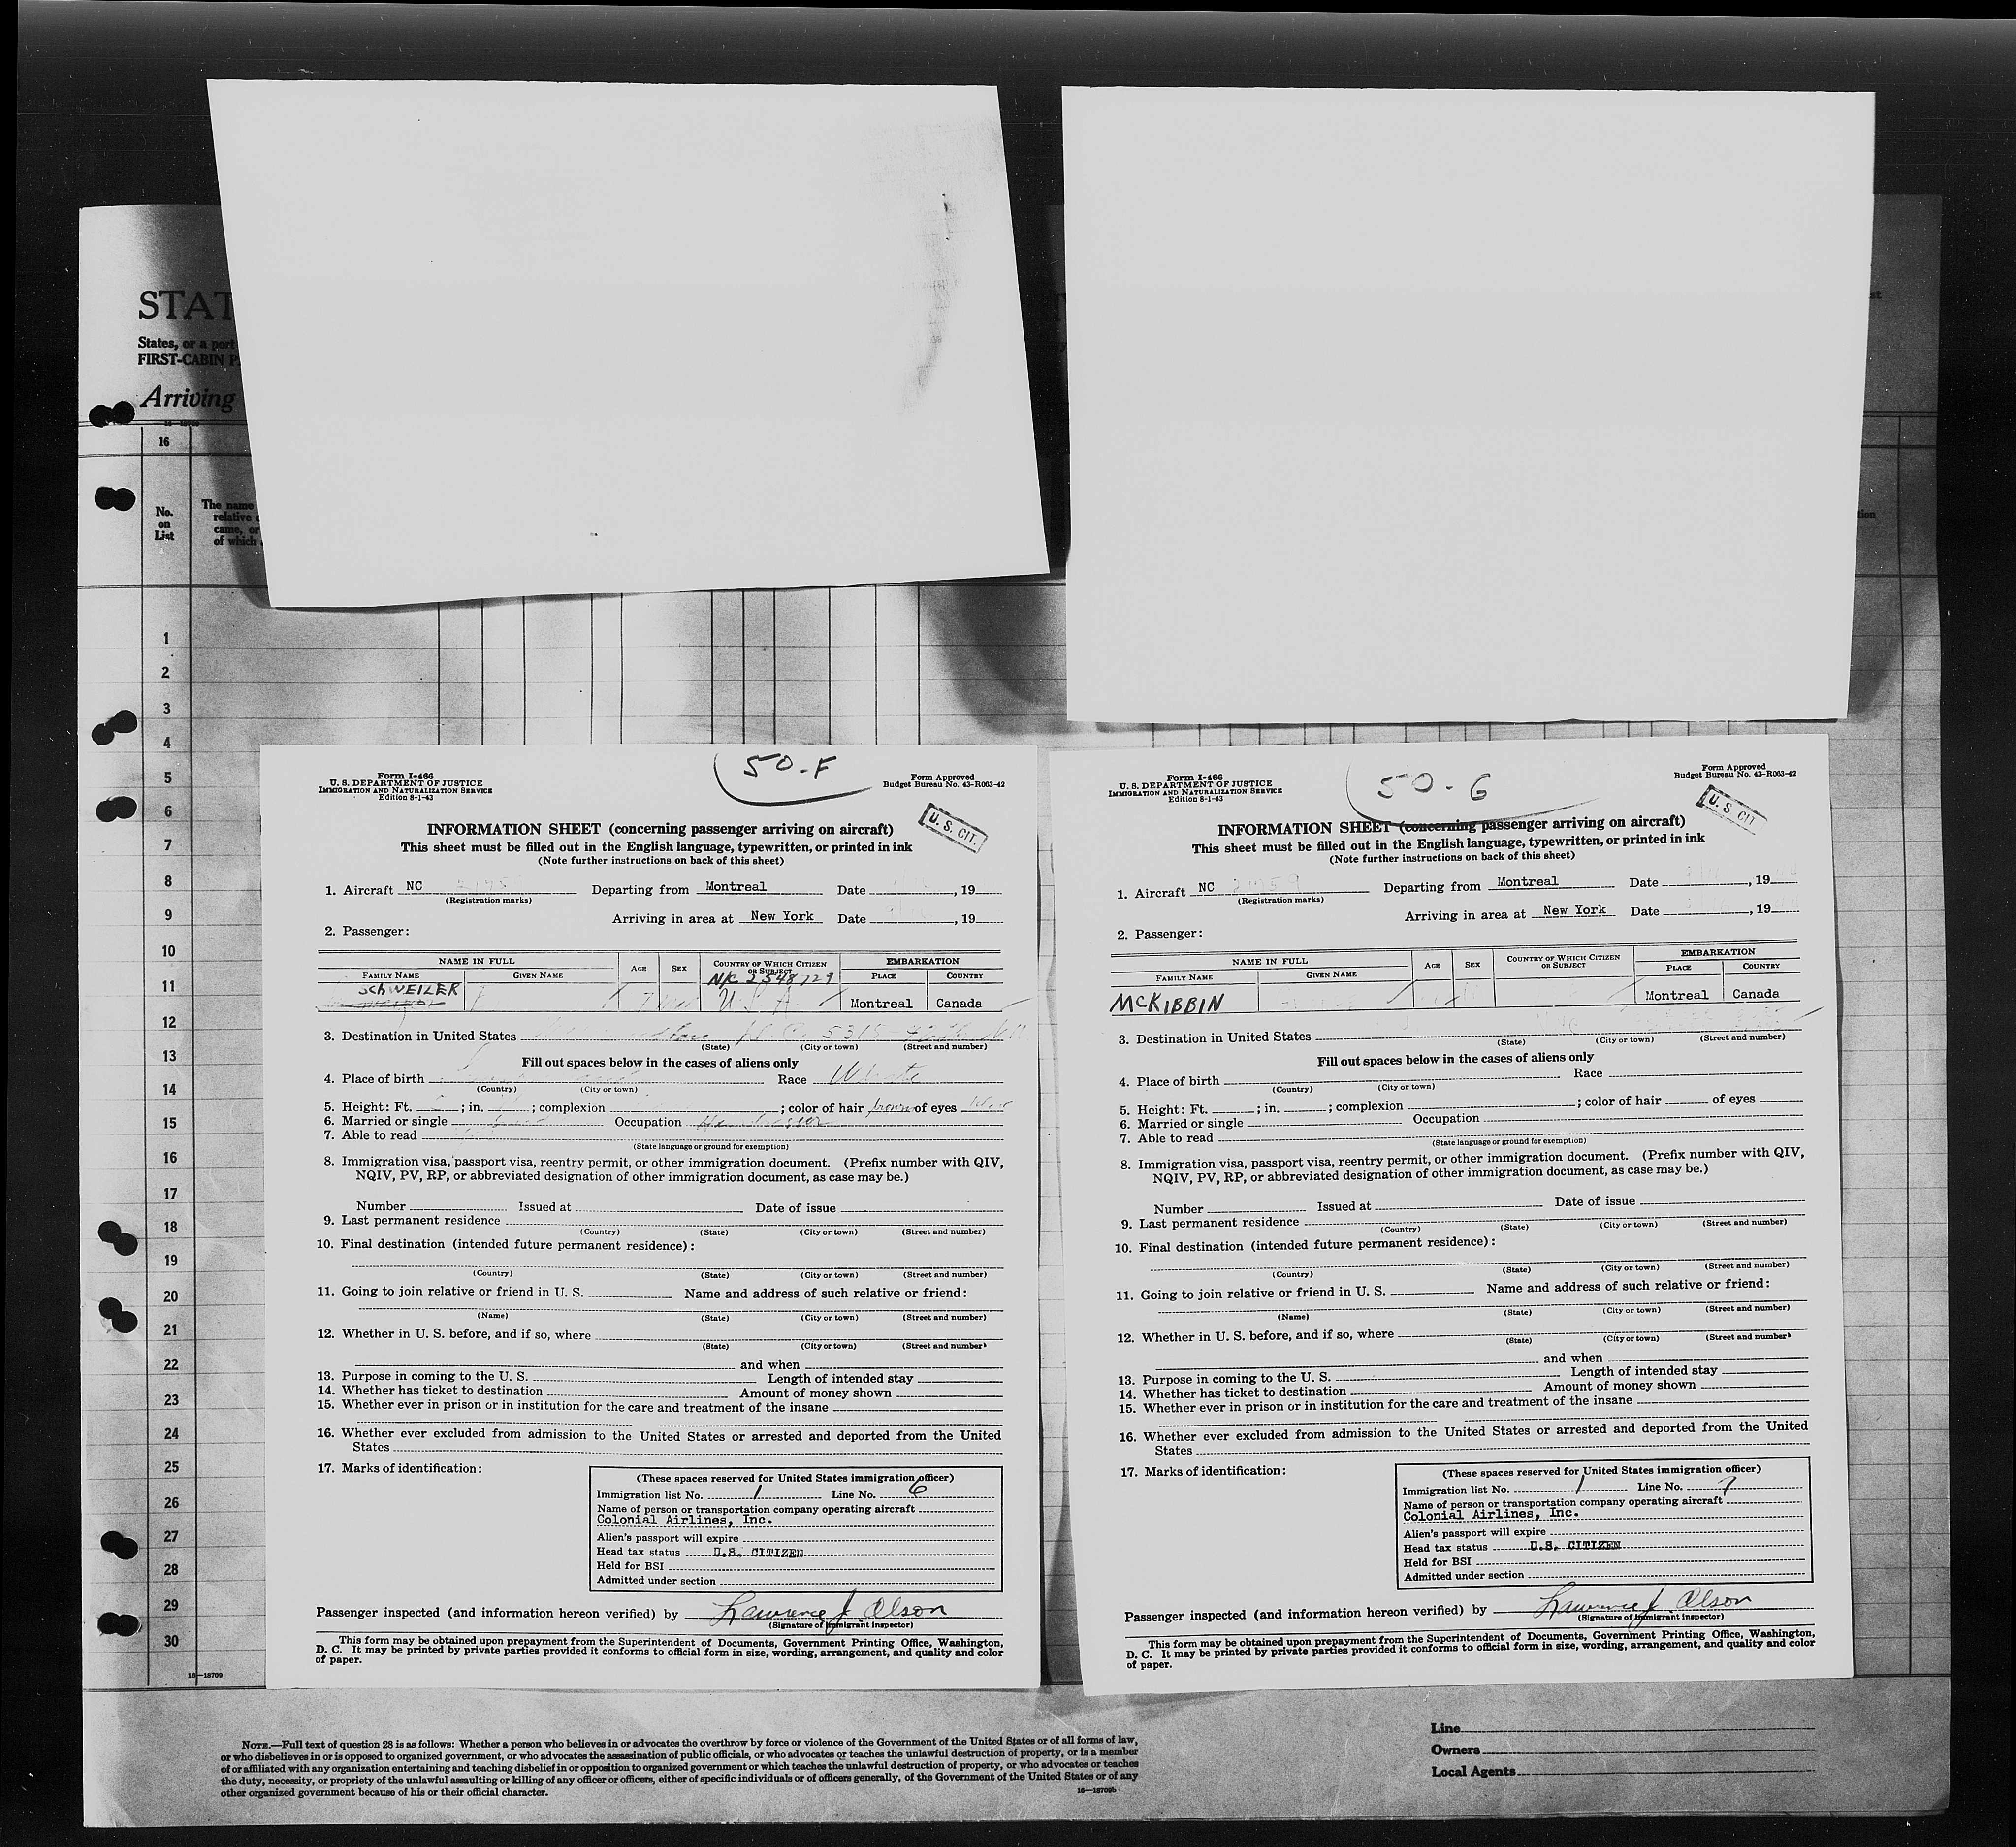 STAT
States, or a port
FIRST-CABIN P
Arriving
16—18709
16
No.
on
List
The name
relative
came, or
of which
1
2
3
4
5
6
7
8
9
10
11
12
13
14
15
16
17
18
19
20
21
22
23
24
25
26
27
28
29
30
16—18709
50-F
Form I-466
U. S. DEPARTMENT OF JUSTICE
IMMIGRATION AND NATURALIZATION SERVICE
Edition 8-1-43
Form Approved
Budget Bureau No. 43-R063-42
U. S. CIT.
INFORMATION SHEET (concerning passenger arriving on aircraft)
This sheet must be filled out in the English language, typewritten, or printed in ink
(Note further instructions on back of this sheet)
1. Aircraft NC Departing from Montreal Date , 19
(Registration marks)
Arriving in area at New York Date , 19
2. Passenger:
NAME IN FULL
FAMILY NAME GIVEN NAME
AGE
SEX
COUNTRY OF WHICH CITIZEN
OR SUBJECT
EMBARKATION
PLACE COUNTRY
N/C 2548729
SCHWEILER
U S A Montreal Canada
3. Destination in United States 5318
(State) (City or town) (Street and number)
Fill out spaces below in the cases of aliens only
4. Place of birth Race White
(Country) (City or town)
5. Height: Ft. ; in. ; complexion ; color of hair brown of eyes
6. Married or single Occupation
7. Able to read
(State language or ground for exemption)
8. Immigration visa, passport visa, reentry permit, or other immigration document. (Prefix number with QIV,
NQIV, PV, RP, or abbreviated designation of other immigration document, as case may be.)
Number Issued at Date of issue
9. Last permanent residence
(Country) (State) (City or town) (Street and number)
10. Final destination (intended future permanent residence):
(Country) (State) (City or town) (Street and number)
11. Going to join relative or friend in U. S. Name and address of such relative or friend:
(Name) (State) (City or town) (Street and number)
12. Whether in U. S. before, and if so, where
(State) (City or town) (Street and number)
and when
13. Purpose in coming to the U. S. Length of intended stay
14. Whether has ticket to destination Amount of money shown
15. Whether ever in prison or in institution for the care and treatment of the insane
16. Whether ever excluded from admission to the United States or arrested and deported from the United
States
17. Marks of identification:
(These spaces reserved for United States immigration officer)
Immigration list No. 1 Line No. 6
Name of person or transportation company operating aircraft
Colonial Airlines, Inc.
Alien's passport will expire
Head tax status U.S. CITIZEN
Held for BSI
Admitted under section
Passenger inspected (and information hereon verified) by Lawrence J. Olson
(Signature of immigrant inspector)
This form may be obtained upon prepayment from the Superintendent of Documents, Government Printing Office, Washington,
D. C. It may be printed by private parties provided it conforms to official form in size, wording, arrangement, and quality and color
of paper.
50-G
Form I-466
U. S. DEPARTMENT OF JUSTICE
IMMIGRATION AND NATURALIZATION SERVICE
Edition 8-1-43
Form Approved
Budget Bureau No. 43-R063-42
U. S. CIT.
INFORMATION SHEET (concerning passenger arriving on aircraft)
This sheet must be filled out in the English language, typewritten, or printed in ink
(Note further instructions on back of this sheet)
1. Aircraft NC 21759 Departing from Montreal Date , 19
(Registration marks)
Arriving in area at New York Date , 19
2. Passenger:
NAME IN FULL
FAMILY NAME GIVEN NAME
AGE
SEX
COUNTRY OF WHICH CITIZEN
OR SUBJECT
EMBARKATION
PLACE COUNTRY
MCKIBBIN Montreal Canada
3. Destination in United States
(State) (City or town) (Street and number)
Fill out spaces below in the cases of aliens only
4. Place of birth Race
(Country) (City or town)
5. Height: Ft. ; in. ; complexion ; color of hair of eyes
6. Married or single Occupation
7. Able to read
(State language or ground for exemption)
8. Immigration visa, passport visa, reentry permit, or other immigration document. (Prefix number with QIV,
NQIV, PV, RP, or abbreviated designation of other immigration document, as case may be.)
Number Issued at Date of issue
9. Last permanent residence
(Country) (State) (City or town) (Street and number)
10. Final destination (intended future permanent residence):
(Country) (State) (City or town) (Street and number)
11. Going to join relative or friend in U. S. Name and address of such relative or friend:
(Name) (State) (City or town) (Street and number)
12. Whether in U. S. before, and if so, where
(State) (City or town) (Street and number)
and when
13. Purpose in coming to the U. S. Length of intended stay
14. Whether has ticket to destination Amount of money shown
15. Whether ever in prison or in institution for the care and treatment of the insane
16. Whether ever excluded from admission to the United States or arrested and deported from the United
States
17. Marks of identification:
(These spaces reserved for United States immigration officer)
Immigration list No. 1 Line No. 7
Name of person or transportation company operating aircraft
Colonial Airlines, Inc.
Alien's passport will expire
Head tax status U.S. CITIZEN
Held for BSI
Admitted under section
Passenger inspected (and information hereon verified) by Lawrence J. Olson
(Signature of immigrant inspector)
This form may be obtained upon prepayment from the Superintendent of Documents, Government Printing Office, Washington,
D. C. It may be printed by private parties provided it conforms to official form in size, wording, arrangement, and quality and color
of paper.
NOTE.—Full text of question 28 is as follows: Whether a person who believes in or advocates the overthrow by force or violence of the Government of the United States or of all forms of law,
or who disbelieves in or is opposed to organized government, or who advocates the assassination of public officials, or who advocates or teaches the unlawful destruction of property, or is a member
of or affiliated with any organization entertaining and teaching disbelief in or opposition to organized government or which teaches the unlawful destruction of property, or who advocates or teaches
the duty, necessity, or propriety of the unlawful assaulting or killing of any officer or officers, either of specific individuals or of officers generally, of the Government of the United States or of any
other organized government because of his or their official character.
16—18709b
Line
Owners
Local Agents